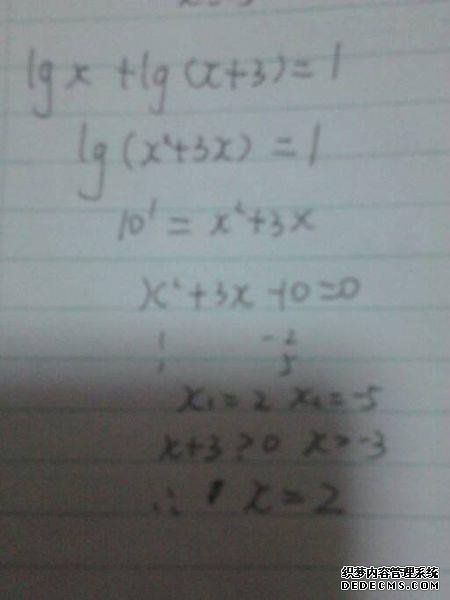 lg x + lg(x+3) = 1
lg(x²+3x) = 1
10¹ = x²+3x
x²+3x-10=0
1 -2
1 5
x₁=2 x₂=-5
x+3>0 x>-3
∴ x=2
织梦内容管理系统
DEDECMS.COM